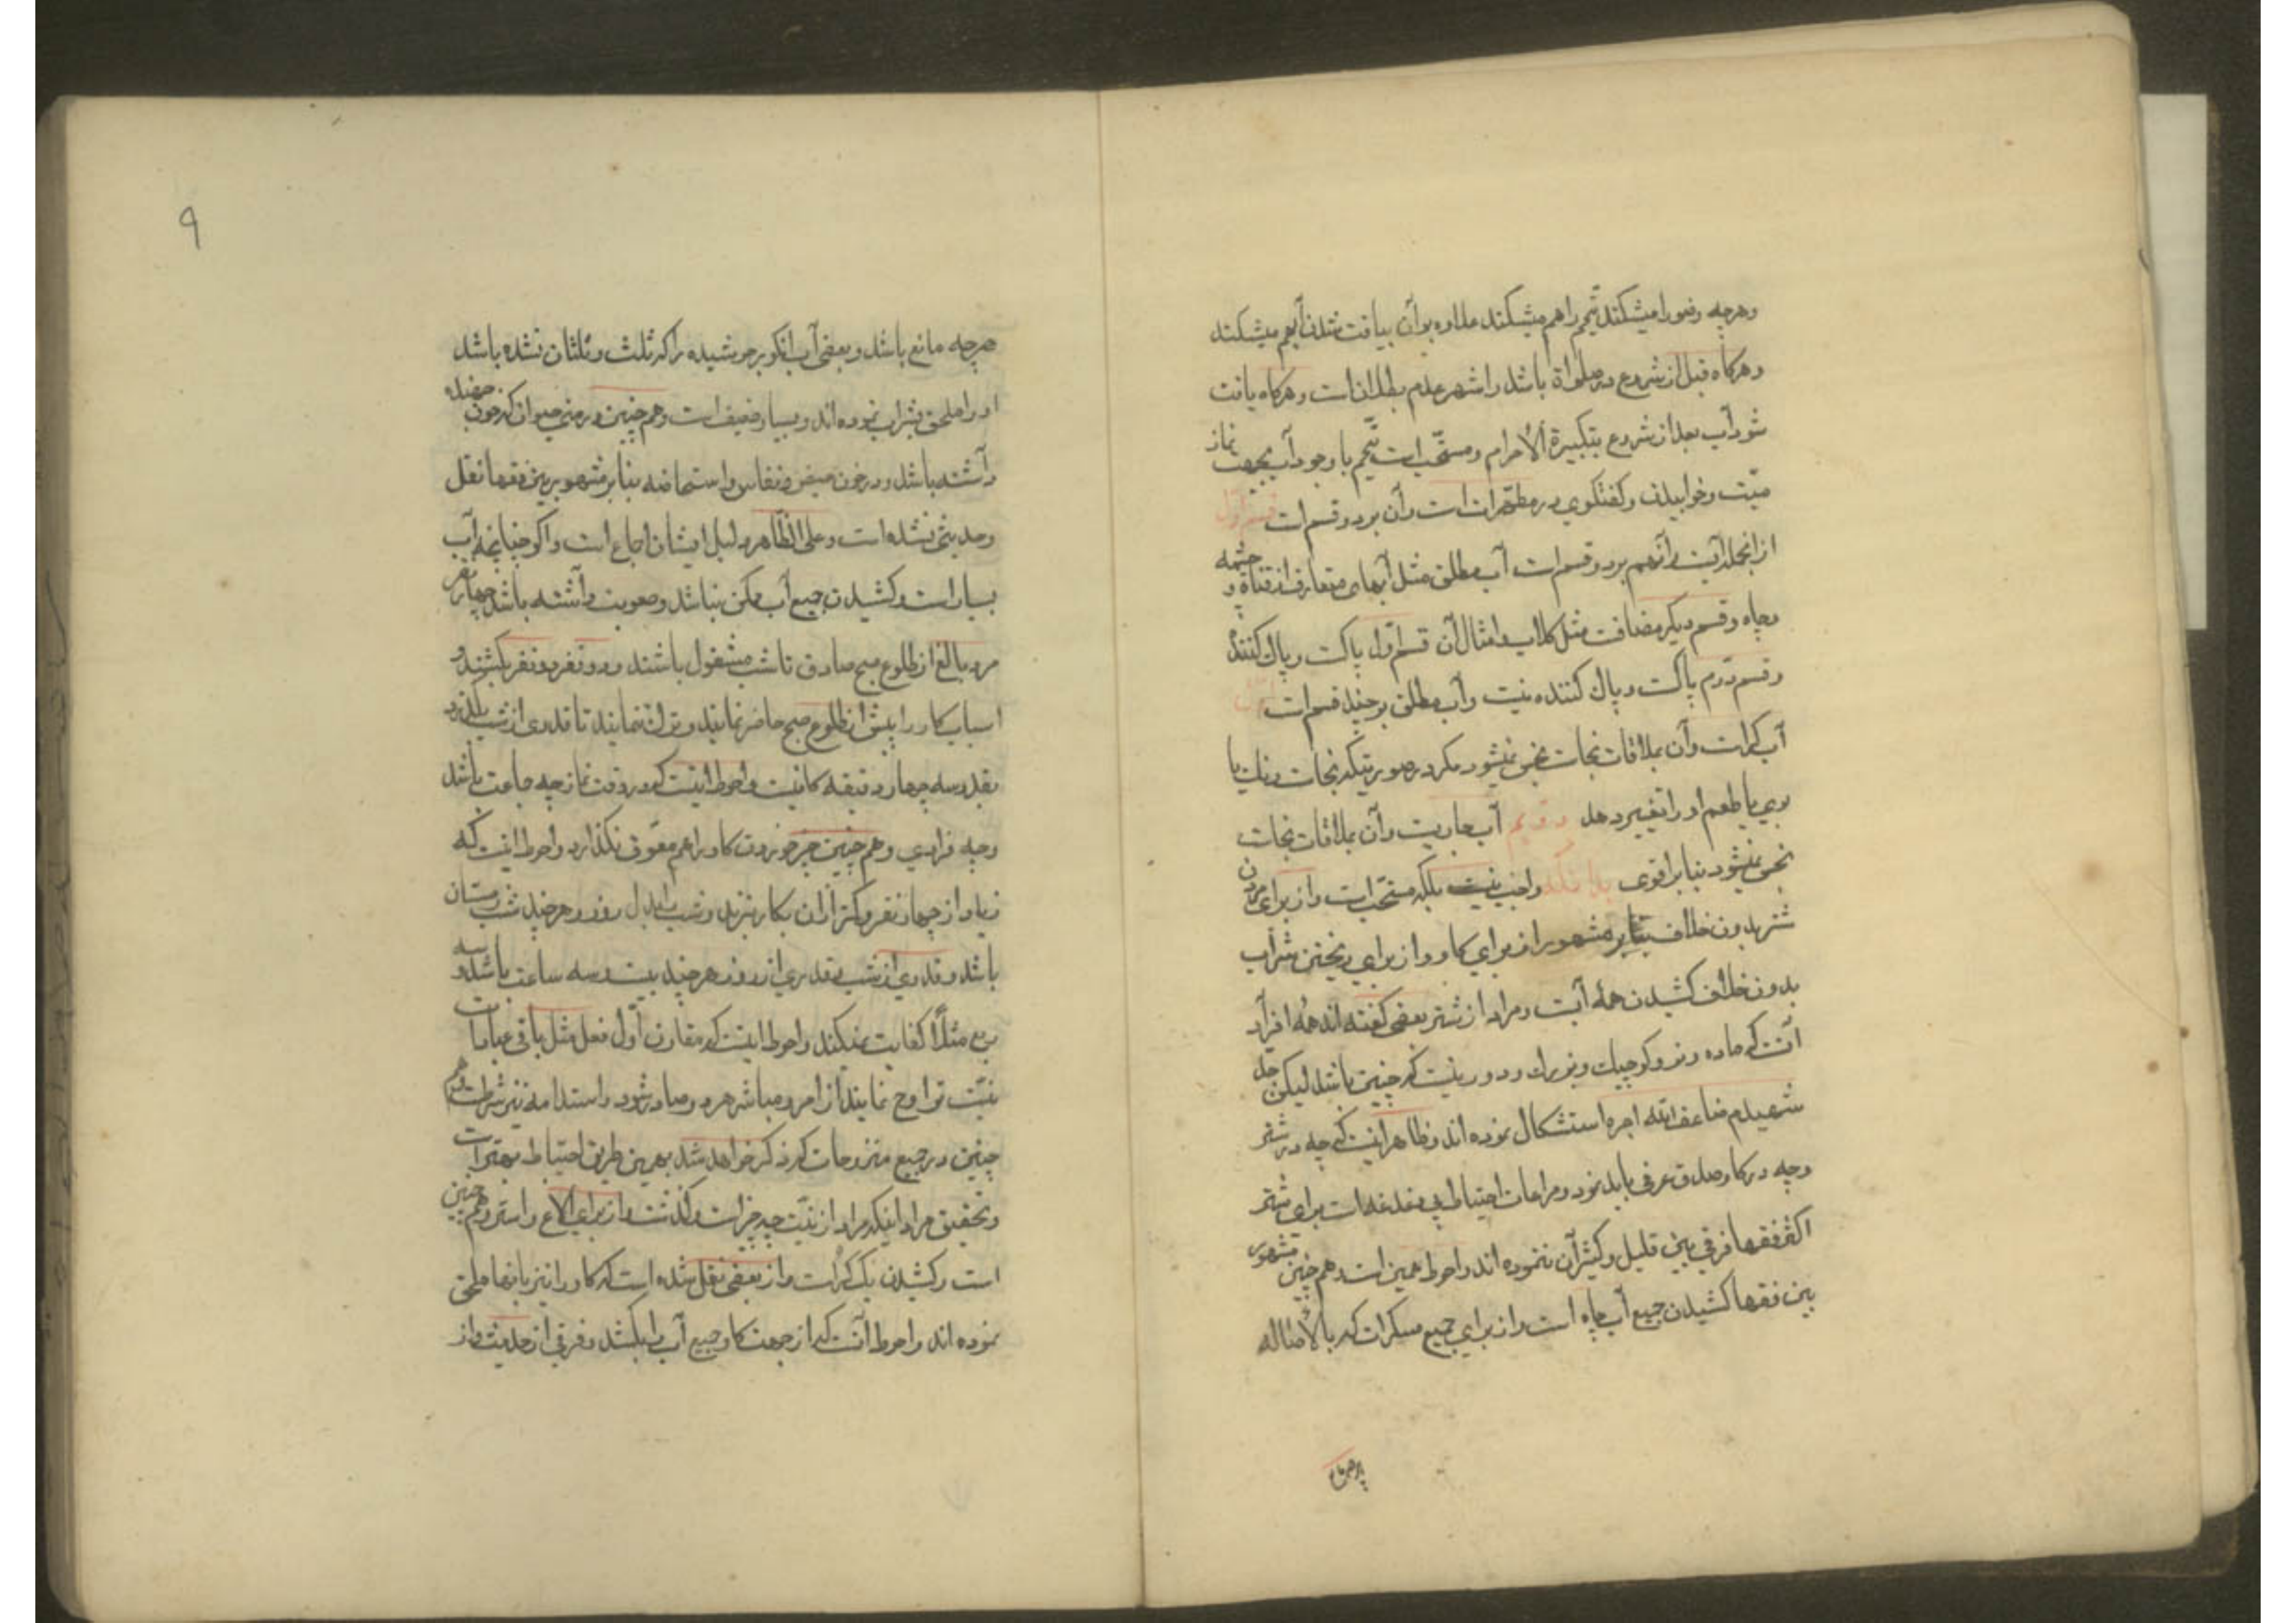 وهرچه وضورا میشکند تیمم راهم میشکند علاوه بر آن بیافت شدن آبهم میشکند
وهرکاه قبل از شروع در صلوة باشد واشهر عدم بطلان است وهرکاه یافت
شود آب بعد از شروع بتکبیرة الأحرام ومستحب است تیمم با وجود آب بجهت نماز
میّت وخوابیدن وکفتکوی در مطهّرات است وآن بر دو قسم است قسم اول
از انجمله آبست وآنهم بر دو قسم است آب مطلق مثل آبهای متعارف از قناة و چشمه
وچاه وقسم دیکر مضافست مثل کلاب وامثال آن قسم اول پاکست وپاک کننده
وقسم دوم پاکست وپاک کننده نیست وآب مطلق بر چند قسم است
آب کر است وآن بملاقات نجاست نجس نمیشود مکر در صورتیکه نجاست رنک یا
بوی یا طعم او را تغییر دهد دویم آب جاریست وآن بملاقات نجاست
نجس نمیشود بنابر اقوی بدانکه واجب نیست بلکه مستحب است واز برای مردن
شتر بدون خلاف بنابر مشهور از برای کاو واز برای ریختن شراب
بدون خلاف کشیدن همه آبست ومراد از شتر بعضی کفته اند همه افراد
آنست که ماده ونر وکوچک وبزرک ودور نیست که چنین باشد لیکن جد
شهیدم ضاعف الله اجره استشکال نموده اند وظاهر اینست که چه در شتر
وچه در کاو صدق عرفی باید نمود ومراعات احتیاط بی دغدغه است برای شتر
اکثر فقها فرقی بین قلیل وکثیر آن ننموده اند واحوط همین است وهم چنین مشهور
بین فقها کشیدن جمیع آب چاه است واز برای جمیع مسکرات که بالأصاله
هرچه مانع باشد وبعضی آب انکور جوشیده را که ثلث وثلثان نشده باشد
او را ملحق بشراب نموده اند وبسیار ضعیف است وهم چنین در منی حیوان که خون جهنده
داشته باشد ودر خون حیض ونفاس واستحاضه بنابر مشهور بین فقها نقل
وحدیثی نشده است وعلی الظّاهر دلیل ایشان اجماع است واکر چنانچه آب
بسیار است وکشیدن جمیع آب ممکن نباشد وصعوبت داشته باشد چهار نفر
مرد بالغ از طلوع صبح صادق تا شب مشغول باشند ودو نفر دو نفر بکشند و
اسباب کار را پیش از طلوع صبح حاضر نمایند وترک ننمایند تا قدری از شب بکذرد
بقدر سه چهار دقیقه کافیست واحوط اینست که در وقت نماز چه جماعت باشد
وچه فرادی وهم چنین چیز خوردن کار را هم معوق نکذارد واحوط اینست که
زیاد از چهار نفر وکمتر از ان بکار نبرند وشب را بدل روز وهرچند شب زمستان
باشد وقدری از شب وقدری از روز هرچند بیست وسه ساعت باشد و سه
ربع مثلاً کفایت نمیکند واحوط اینست که مقارن اول فعل مثل باقی عبادات
نیّت تراوح نمایند از امر ومباشر هر دو صادر شود واستدامه نیز شرطست وهم
چنین در جمیع منزوحات که ذکر خواهد شد بهمین طریق احتیاط بهتر است
وتحقیق مراد اینکه مراد از نیّت چه چیز است وکذشت واز برای الاغ واستر وهم چنین
است وکشیدن یک کر است واز بعضی نقل شده است که کاو را نیز بانها ملحق
نموده اند واحوط آنست که از جهت کاو جمیع آب را بکشد وفرقی از حدیث واز